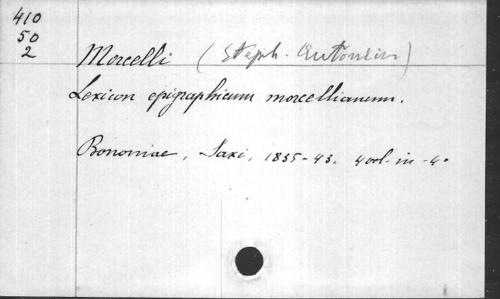 410
50
2
Morcelli (Steph. Antonius)
Lexicon epigraphicum morcellianum.
Bononiae, Saxi, 1835-43. 4 vol. in-4°